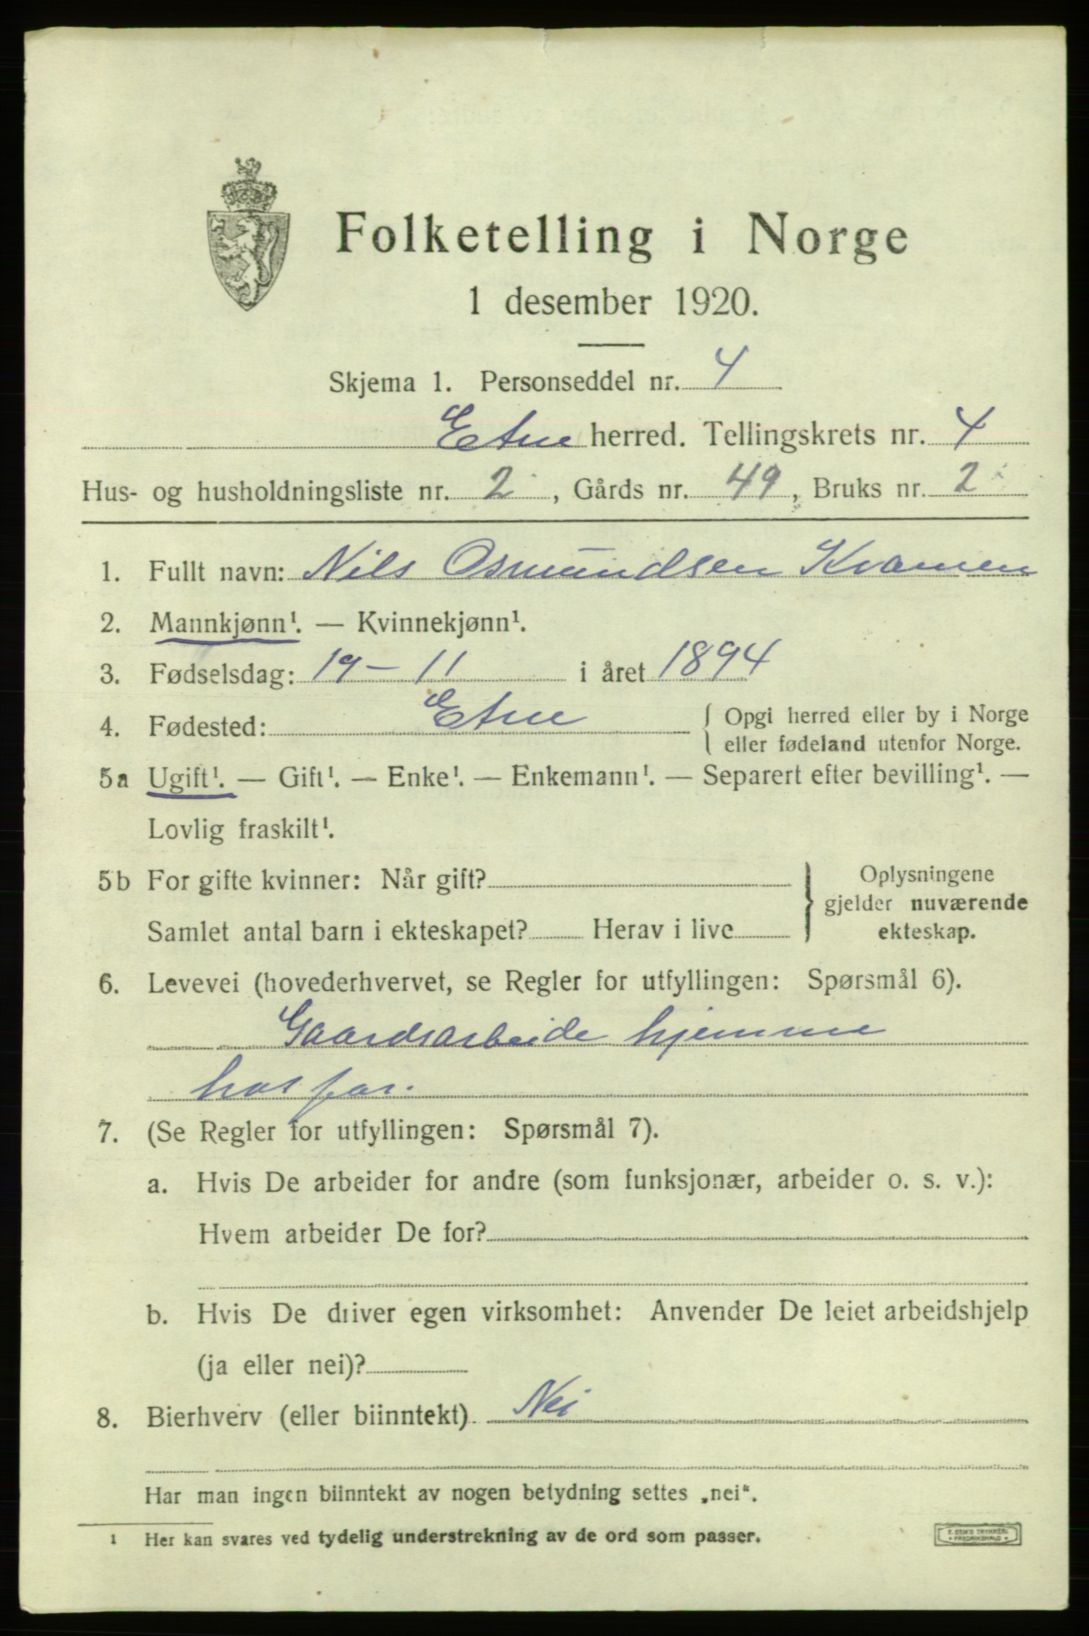 Folketelling i Norge
1 desember 1920.
Skjema 1. Personseddel nr. 4
Etne herred. Tellingskrets nr. 4
Hus- og husholdningsliste nr. 2, Gårds nr. 49, Bruks nr. 2
1. Fullt navn: Nils Osmundsen Kvamen
2. Mannkjønn¹. — Kvinnekjønn¹.
3. Fødselsdag: 19 – 11 i året 1894
4. Fødested: Etne { Opgi herred eller by i Norge
eller fødeland utenfor Norge.
5a Ugift¹. — Gift¹. — Enke¹. — Enkemann¹. — Separert efter bevilling¹. —
Lovlig fraskilt¹.
5b For gifte kvinner: Når gift? } Oplysningene
gjelder nuværende
Samlet antal barn i ekteskapet? Herav i live ekteskap.
6. Levevei (hovederhvervet, se Regler for utfyllingen: Spørsmål 6).
Gaardsarbeide hjemme
hos far.
7. (Se Regler for utfyllingen: Spørsmål 7).
a. Hvis De arbeider for andre (som funksjonær, arbeider o. s. v.):
Hvem arbeider De for?
b. Hvis De driver egen virksomhet: Anvender De leiet arbeidshjelp
(ja eller nei)?
8. Bierhverv (eller biinntekt) Nei
Har man ingen biinntekt av nogen betydning settes „nei“.
1 Her kan svares ved tydelig understrekning av de ord som passer.